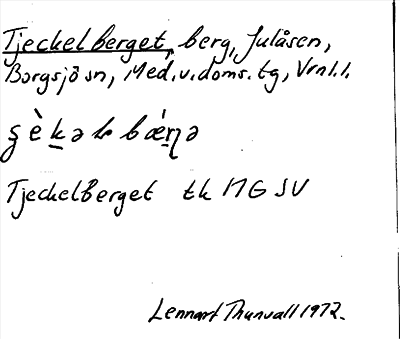 Tjeckelberget, berg, Julåsen,
Borgsjö sn, Med.v.doms.tg, Vrnl.l.
Tjeckelberget tk 17G SV
Lennart Thunvall 1972.